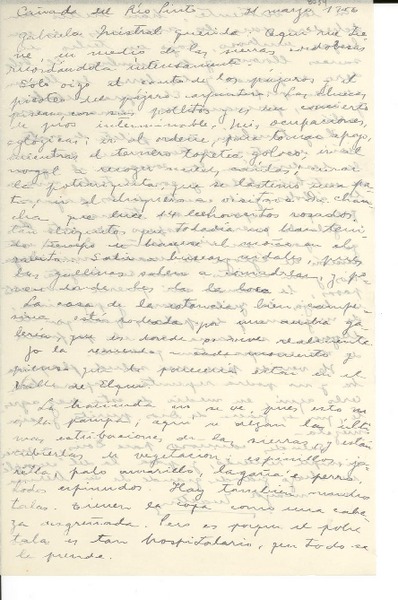 Cañada del Río Pinto 21 marzo 1956
Gabriela Mistral querida: Aquí me tie-
ne en medio de las sierras cordobesas
recordándola intensamente.
Sólo oigo el canto de los pájaros. El
del pájaro carpintero. Las cluecas
pasean con sus pollitos y es un concierto
de píos interminable. Mis ocupaciones
: ir al ordeñe, para tomar apoyo,
mientras el ternero topetea goloso; ir al
nogal a recoger nueces caídas; curar
la potranquita que se lastimó una pa-
ta; ir al chiquero a visitar a la chan-
cha que tiene 14 lechoncitos rosados,
tan chiquitos que todavía no han teni-
do tiempo de hacerse el moño en el
rabito. Salir a buscar nidales, pues
las gallinas saben a escondidas, y po-
nen donde les da la loca.
La casa de la estancia es bien campe-
sina, está rodeada por una ancha ga-
lería, que es donde se vive realmente.
Yo la recuerdo a cada momento y
pienso que le parecería estar en el
Valle de Elqui.
La hacienda no se ve, pues esto no es
la pampa, aquí se alzan las últi-
mas estribaciones de las sierras y están
cubiertas de vegetación, espinillos, ja-
rilla, palo amarillo, lagaña e perro
todos espinudos. Hay también muchos
talas. Tienen la copa como una cabe-
za desgreñada. Pero es porque el pobre
tala es tan hospitalario, que todo se
le prende.